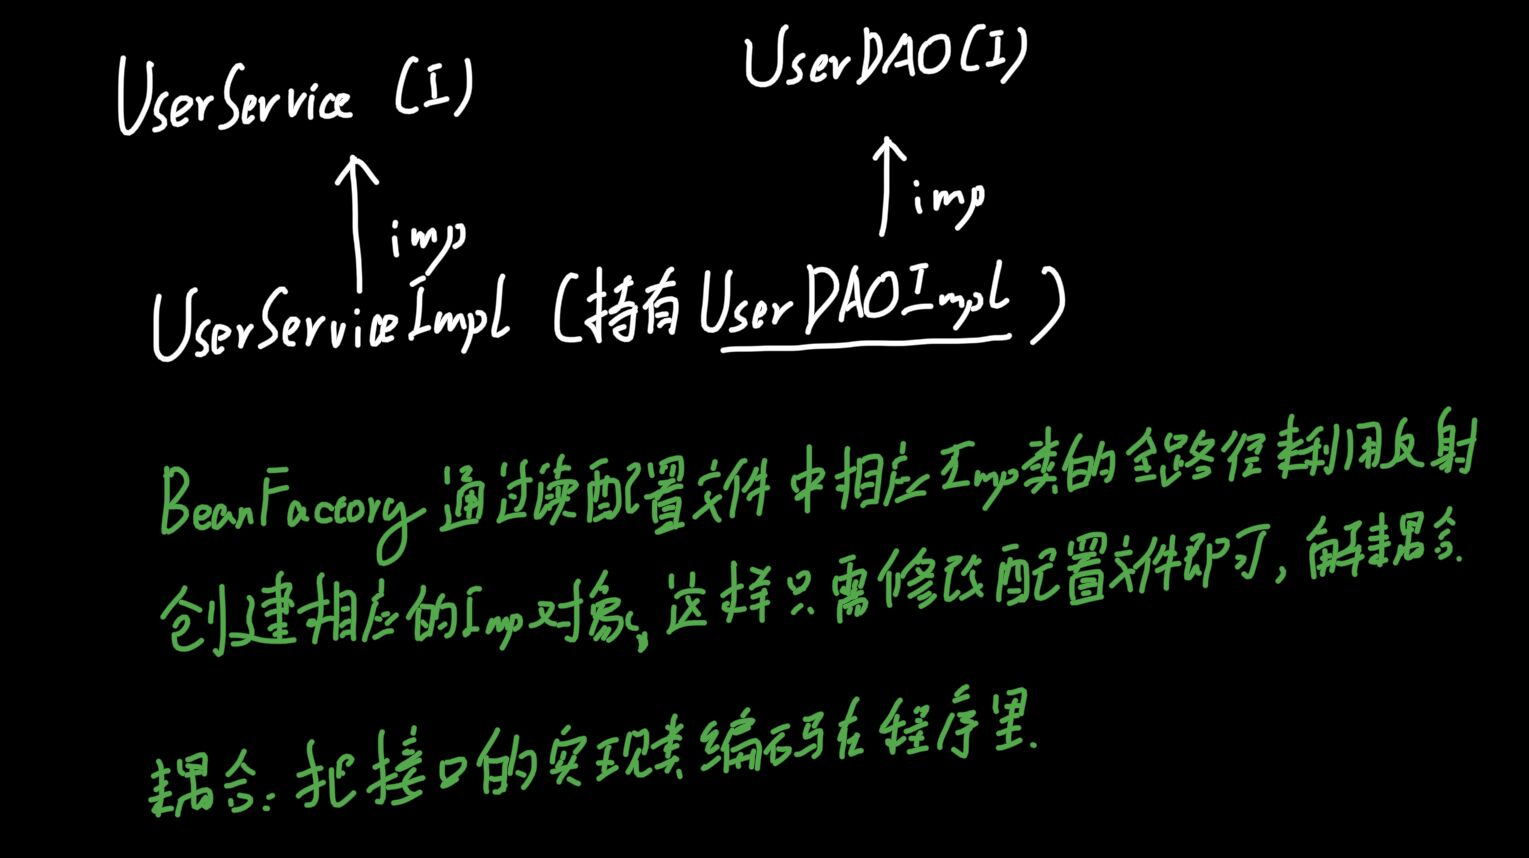 UserService (I)
UserDAO(I)
imp
imp
UserServiceImpl (持有UserDAOImpl)
BeanFactory 通过读配置文件中相应Imp类的全路径来利用反射
创建相应的Imp对象,这样只需修改配置文件即可,解耦合.
耦合:把接口的实现类编码在程序里.